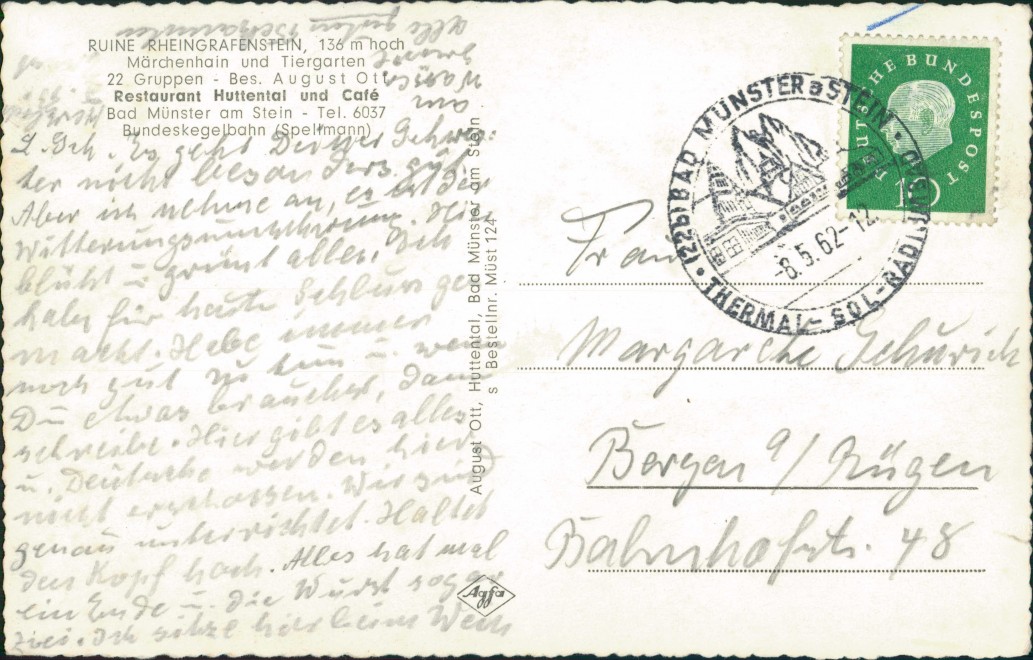 RUINE RHEINGRAFENSTEIN, 136 m hoch
Märchenhain und Tiergarten
22 Gruppen - Bes. August Ott
Restaurant Huttental und Café
Bad Münster am Stein - Tel. 6037
Bundeskegelbahn (Spellmann)
L. Sch. Es geht Deiner Schwes:
ter nicht besonders gut.
Aber ich nehme an, es ist der
Witterungsumschwung. Hier
blüht u grünt alles. Ich
habe für heute Schluss ge
macht. Habe immer
noch gut zu tun u. wenn
Du etwas brauchst, dann
schreibe. Hier gibt es alles
u. Deutsche werden hier
nicht erschossen. Wir sind
genau unterrichtet. Haltet
den Kopf hoch. Alles hat mal
ein Ende u. die Wurst sogar
zwei. Ich sitze hier beim Wein
am
Alle guten
August Ott, Huttental, Bad Münster am Stein
s Bestellnr. Müst 124
Agfa
(22b) BAD MÜNSTER a STEIN
THERMAL- SOL- RADIUMBAD
-8.5.62-12
DEUTSCHE BUNDESPOST
10
Frau
Margarete Schurich
Bergen a/ Rügen
Bahnhofstr. 48